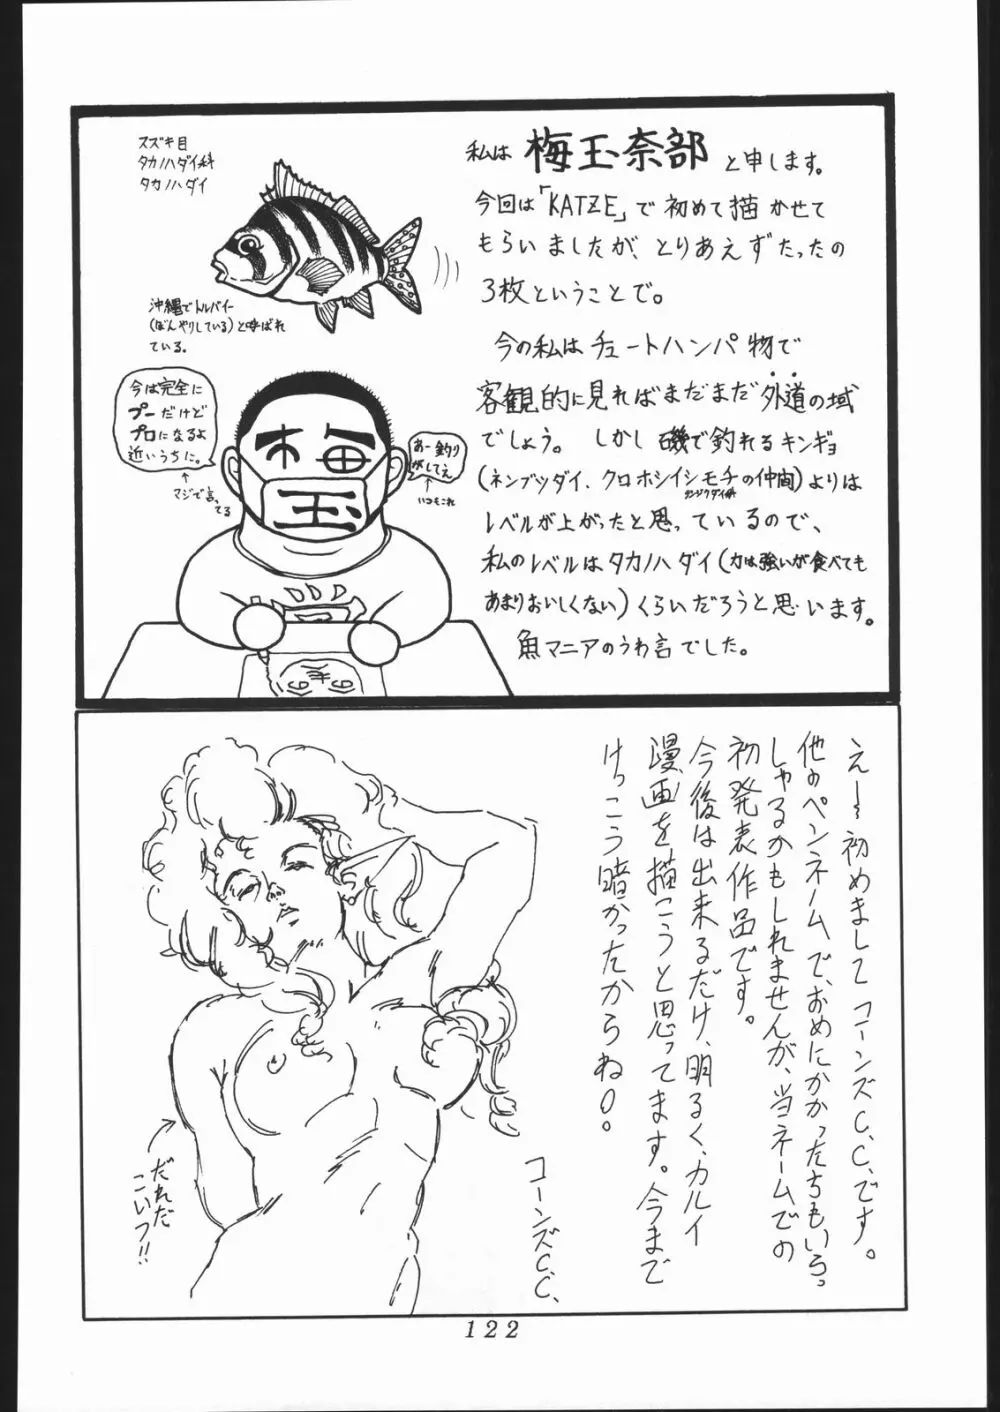 スズキ目
タカノハダイ科
タカノハダイ
沖縄でトルバイー
(ぼんやりしている)と呼ばれ
ている。
私は 梅玉奈部 と申します。
今回は「KATZE」で初めて描かせて
もらいましたが、とりあえずたったの
3枚ということで。
今の私はチュートハンパ物で
客観的に見ればまだまだ外道の域
でしょう。しかし磯で釣れるキンギョ
(ネンブツダイ、クロホシイシモチの仲間)よりは
テンジクダイ科
レベルが上がったと思っているので、
私のレベルはタカノハダイ(力は強いが食べても
あまりおいしくない)くらいだろうと思います。
魚マニアのうわ言でした。
今は完全に
プーだけど
プロになるよ
近いうちに。
マジで言っ
てる
あー釣り
がしてえ
いつもこれ
梅
玉
え〜初めまして コーンズC.C.です。
他のペンネームで、おめにかかったちもいらっ
しゃるかもしれませんが、当ネームでの
初発表作品です。
今後は出来るだけ、明るく、カルイ
漫画を描こうと思ってます。今まで
けっこう暗かったからね。
コーンズC.C.
だれだ
こいつ!!
122